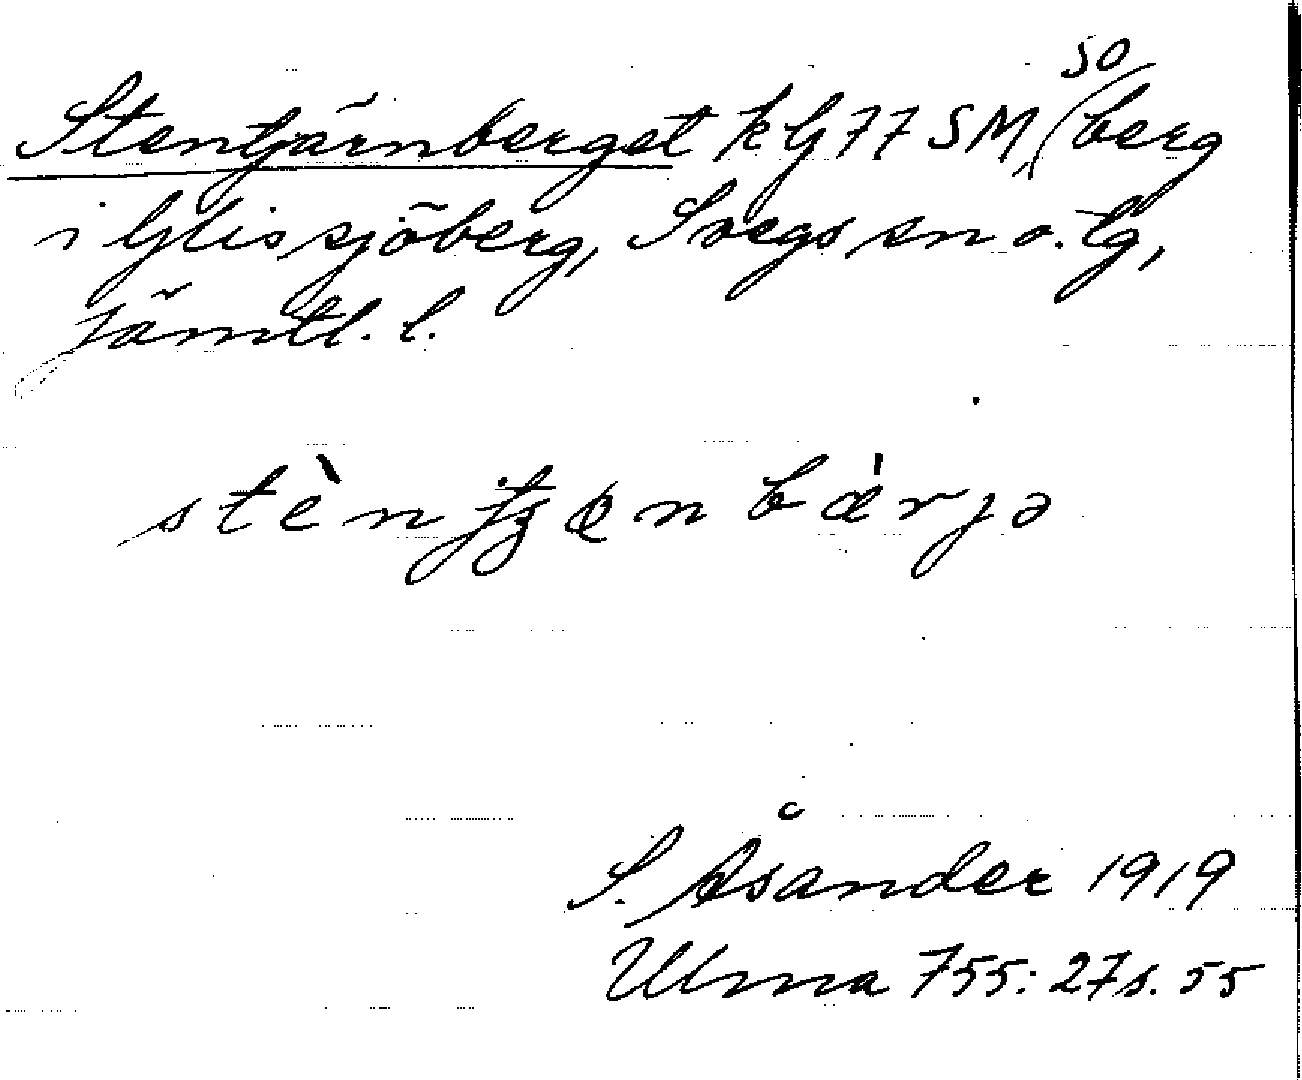 Stentjärnberget k G 77 SM, SO (berg
i Glissjöberg, Svegs sn o. tg,
Jämtl. l.
stènbær̀jə
S. Åsander 1919
Ulma 755:27 s. 55